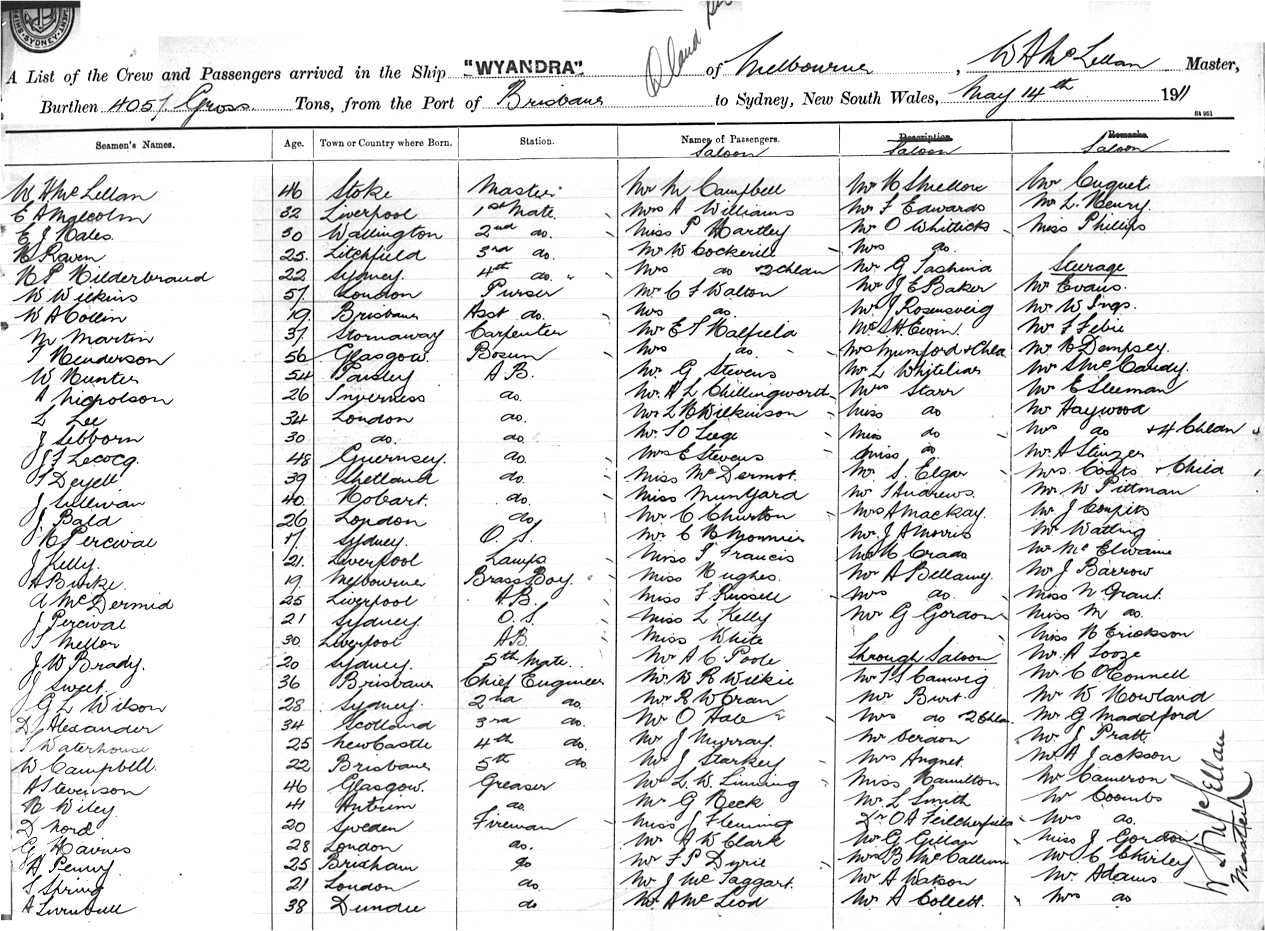 SYDNEY
"WYANDRA"
A List of the Crew and Passengers arrived in the Ship "WYANDRA" of Melbourne, W A McLellan Master,
Burthen 4057 Gross Tons, from the Port of Brisbane to Sydney, New South Wales, May 14th 1911
Seamen's Names. Age. Town or Country where Born. Station. Names of Passengers. Description Remarks
Saloon Saloon Saloon
W A McLellan 46 Stoke Master Mr M Campbell Mr Cuquet
E A Malcolm 32 Liverpool 1st Mate Mrs A Williams Mr F Edwards Mr L. Henry
E J Hales 30 Wallington 2nd do. Miss P Hartley Mr O Whitticks Miss Phillips
H Raven 25 Litchfield 3rd do. Mr W Cockerill Mrs do.
H P Hilderbrand 22 Sydney 4th do. Mrs do + 2 Chldn Mr G Tashina Sturage
W Wilkins 57 London Purser Mr C F Walton Mr J E Baker Mr Evans
W A Collin 19 Brisbane Asst do. Mrs do Mr J Rosensveig Mr W Ings
M Martin 37 Stornaway Carpenter Mr E S Halfield Mr F Febie
J Henderson 56 Glasgow Bosun Mrs do. Mrs Mumford + Chld Mr H Dempsey
W Hunter 54 Paisley A.B. Mr G Stevens Mr L Whiteliar Mr S McCandy
A Nicholson 26 Inverness do. Mr A L Chillingword Mrs Starr Mr E Sleeman
L Lee 34 London do. Mr L H Wilkinson Miss do Mr Haywood
J Sibborn 30 do. do Mr S O Liege Miss do Mrs do + 4 Chldn
J F Lecocq 48 Guernsey do. Mrs E Stevens Miss do Mr A Stinzer
T Deyell 39 Shetland do. Miss McDermot Mr S. Elgar Mrs Coats + Child
J Sullivan 40 Hobart do. Miss Mungard Mr T Andrews Mr W Pittman
J Bald 26 London do Mr C Churton Mrs A Mackay Mr J
C Percival 17 Sydney O.S. Mr C H Monnier Mr J A Morris Mr Watling
J Kelly 21 Liverpool Lamps Miss T Francis Mr H Mr McElwaine
A Burke 19 Melbourne Brass Boy Miss Hughes Mr A Bellamy Mr J Barrow
A McDermid 25 Liverpool A.B. Miss F Russell Mrs do. Miss N Grant
J Percival 21 Sydney O.S. Miss L Kelly Mr G Gordon Miss M do.
T Mellor 30 Liverpool A.B. Miss White Miss H Erickson
J W Brady 20 Sydney 5th Mate Mr A C Poole Through Saloon Mr A Looze
J Sweet 36 Brisbane Chief Engineer Mr W R Wilkie Mr Mr C O'Connell
G L Wilson 28 Sydney 2nd do. Mr R W Cran Mr Burt Mr W Howland
D Alexander 34 Scotland 3rd do. Mr O Hale Mrs do 2 Chldn Mr G Maddford
S Waterhouse 25 Newcastle 4th do. Mr J Murray Mr Verdon Mr J Pratt
W Campbell 22 Brisbane 5th do Mr J Starkey Mrs Mr A Jackson
A Stevenson 46 Glasgow Greaser Mr L W Linning Miss Hamilton Mr Cameron
H Wiley 41 Antrim do. Mr G Heck Mr L Smith Mr Coombs
D Nord 20 Sweden Fireman Miss J Fleming Dr O A Mrs do.
G Haines 28 London do. Mr A W Clark Mr G Gillan Miss J Gordon
A Penny 25 Brixham do Mr F P Dyrie Mrs B McCallum Mr C Chirley
T Spring 21 London do Mr J McTaggart Mr A Watson Mr Adams
A Turnbull 38 Dundee do Mr A McLeod Mr A Collett Mrs do
W A McLellan
Master